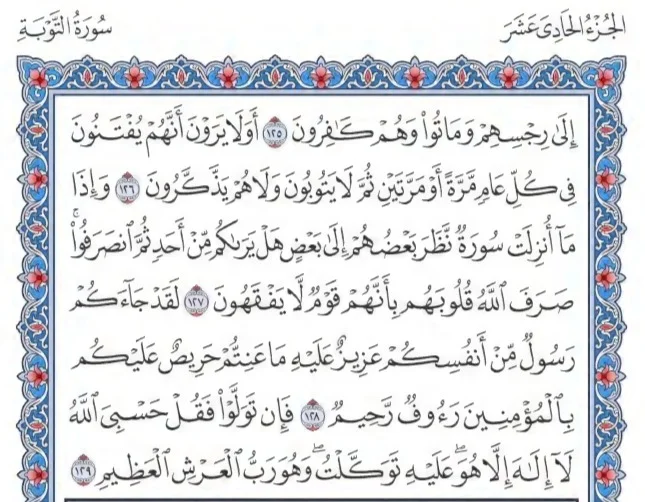 الجزء الحادي عشر
سورة التوبة
إِلَىٰ رِجْسِهِمْ وَمَاتُوا۟ وَهُمْ كَـٰفِرُونَ ١٢٥ أَوَلَا يَرَوْنَ أَنَّهُمْ يُفْتَنُونَ
فِى كُلِّ عَامٍ مَّرَّةً أَوْ مَرَّتَيْنِ ثُمَّ لَا يَتُوبُونَ وَلَا هُمْ يَذَّكَّرُونَ ١٢٦ وَإِذَا
مَآ أُنزِلَتْ سُورَةٌ نَّظَرَ بَعْضُهُمْ إِلَىٰ بَعْضٍ هَلْ يَرَىٰكُم مِّنْ أَحَدٍ ثُمَّ ٱنصَرَفُوا۟ ۚ
صَرَفَ ٱللَّهُ قُلُوبَهُم بِأَنَّهُمْ قَوْمٌ لَّا يَفْقَهُونَ ١٢٧ لَقَدْ جَآءَكُمْ
رَسُولٌ مِّنْ أَنفُسِكُمْ عَزِيزٌ عَلَيْهِ مَا عَنِتُّمْ حَرِيصٌ عَلَيْكُم
بِٱلْمُؤْمِنِينَ رَءُوفٌ رَّحِيمٌ ١٢٨ فَإِن تَوَلَّوْا۟ فَقُلْ حَسْبِىَ ٱللَّهُ
لَآ إِلَـٰهَ إِلَّا هُوَ ۖ عَلَيْهِ تَوَكَّلْتُ ۖ وَهُوَ رَبُّ ٱلْعَرْشِ ٱلْعَظِيمِ ١٢٩